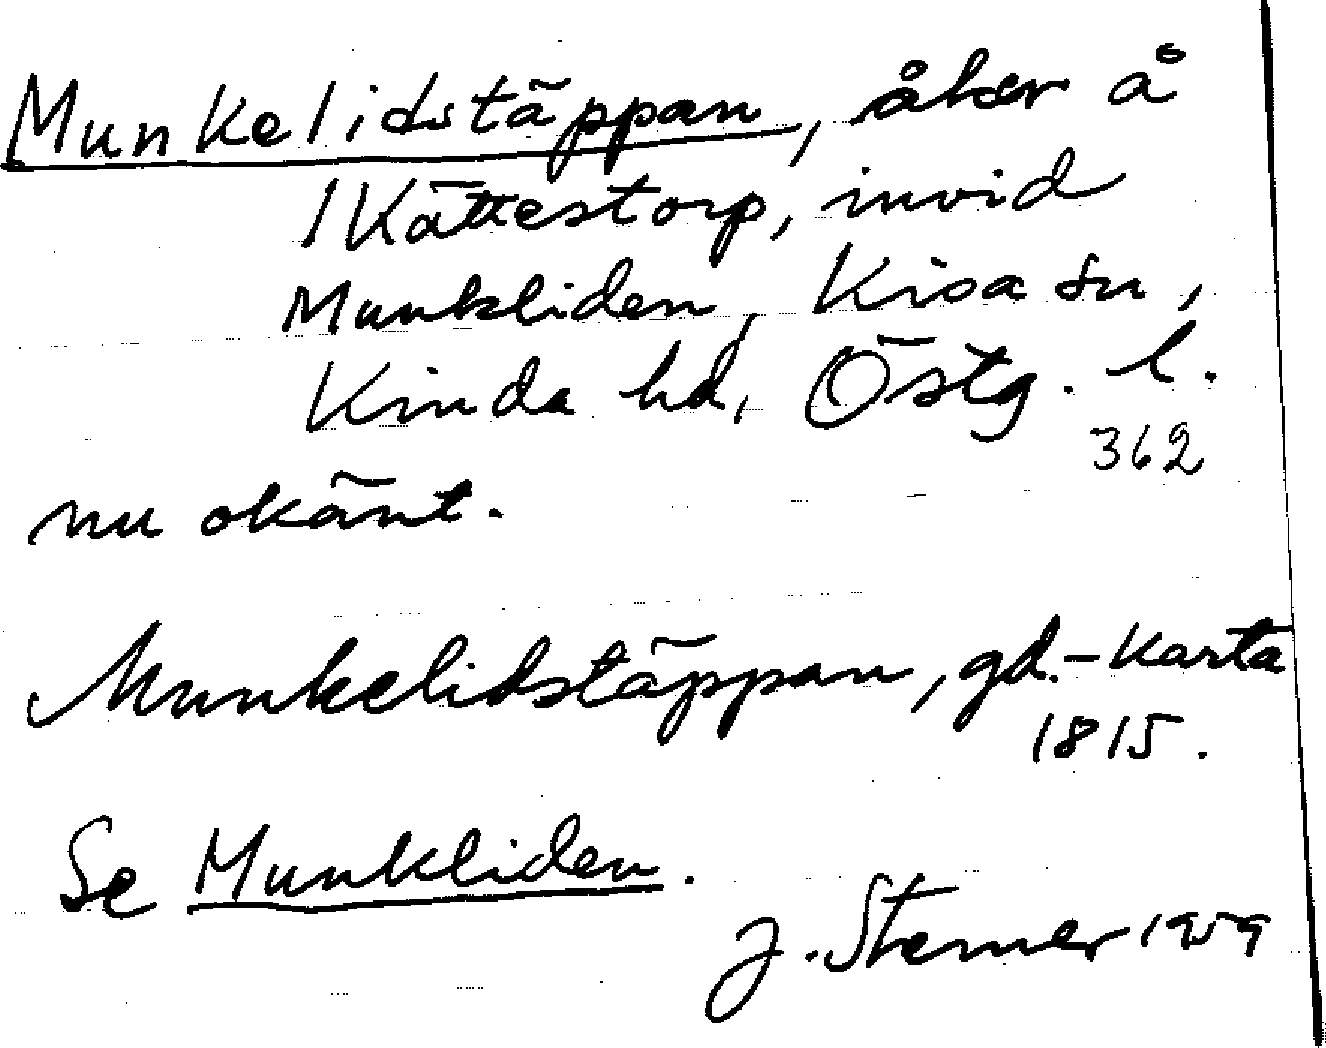 Munkelidstäppan, åker å
1 Kättestorp, invid
Munkliden, Kisa sn,
Kinda hd, Östg. l.
362
nu okänt.
Munkelidstäppan, gd.-karta
1815.
Se Munkliden.
J. Sterner 1959